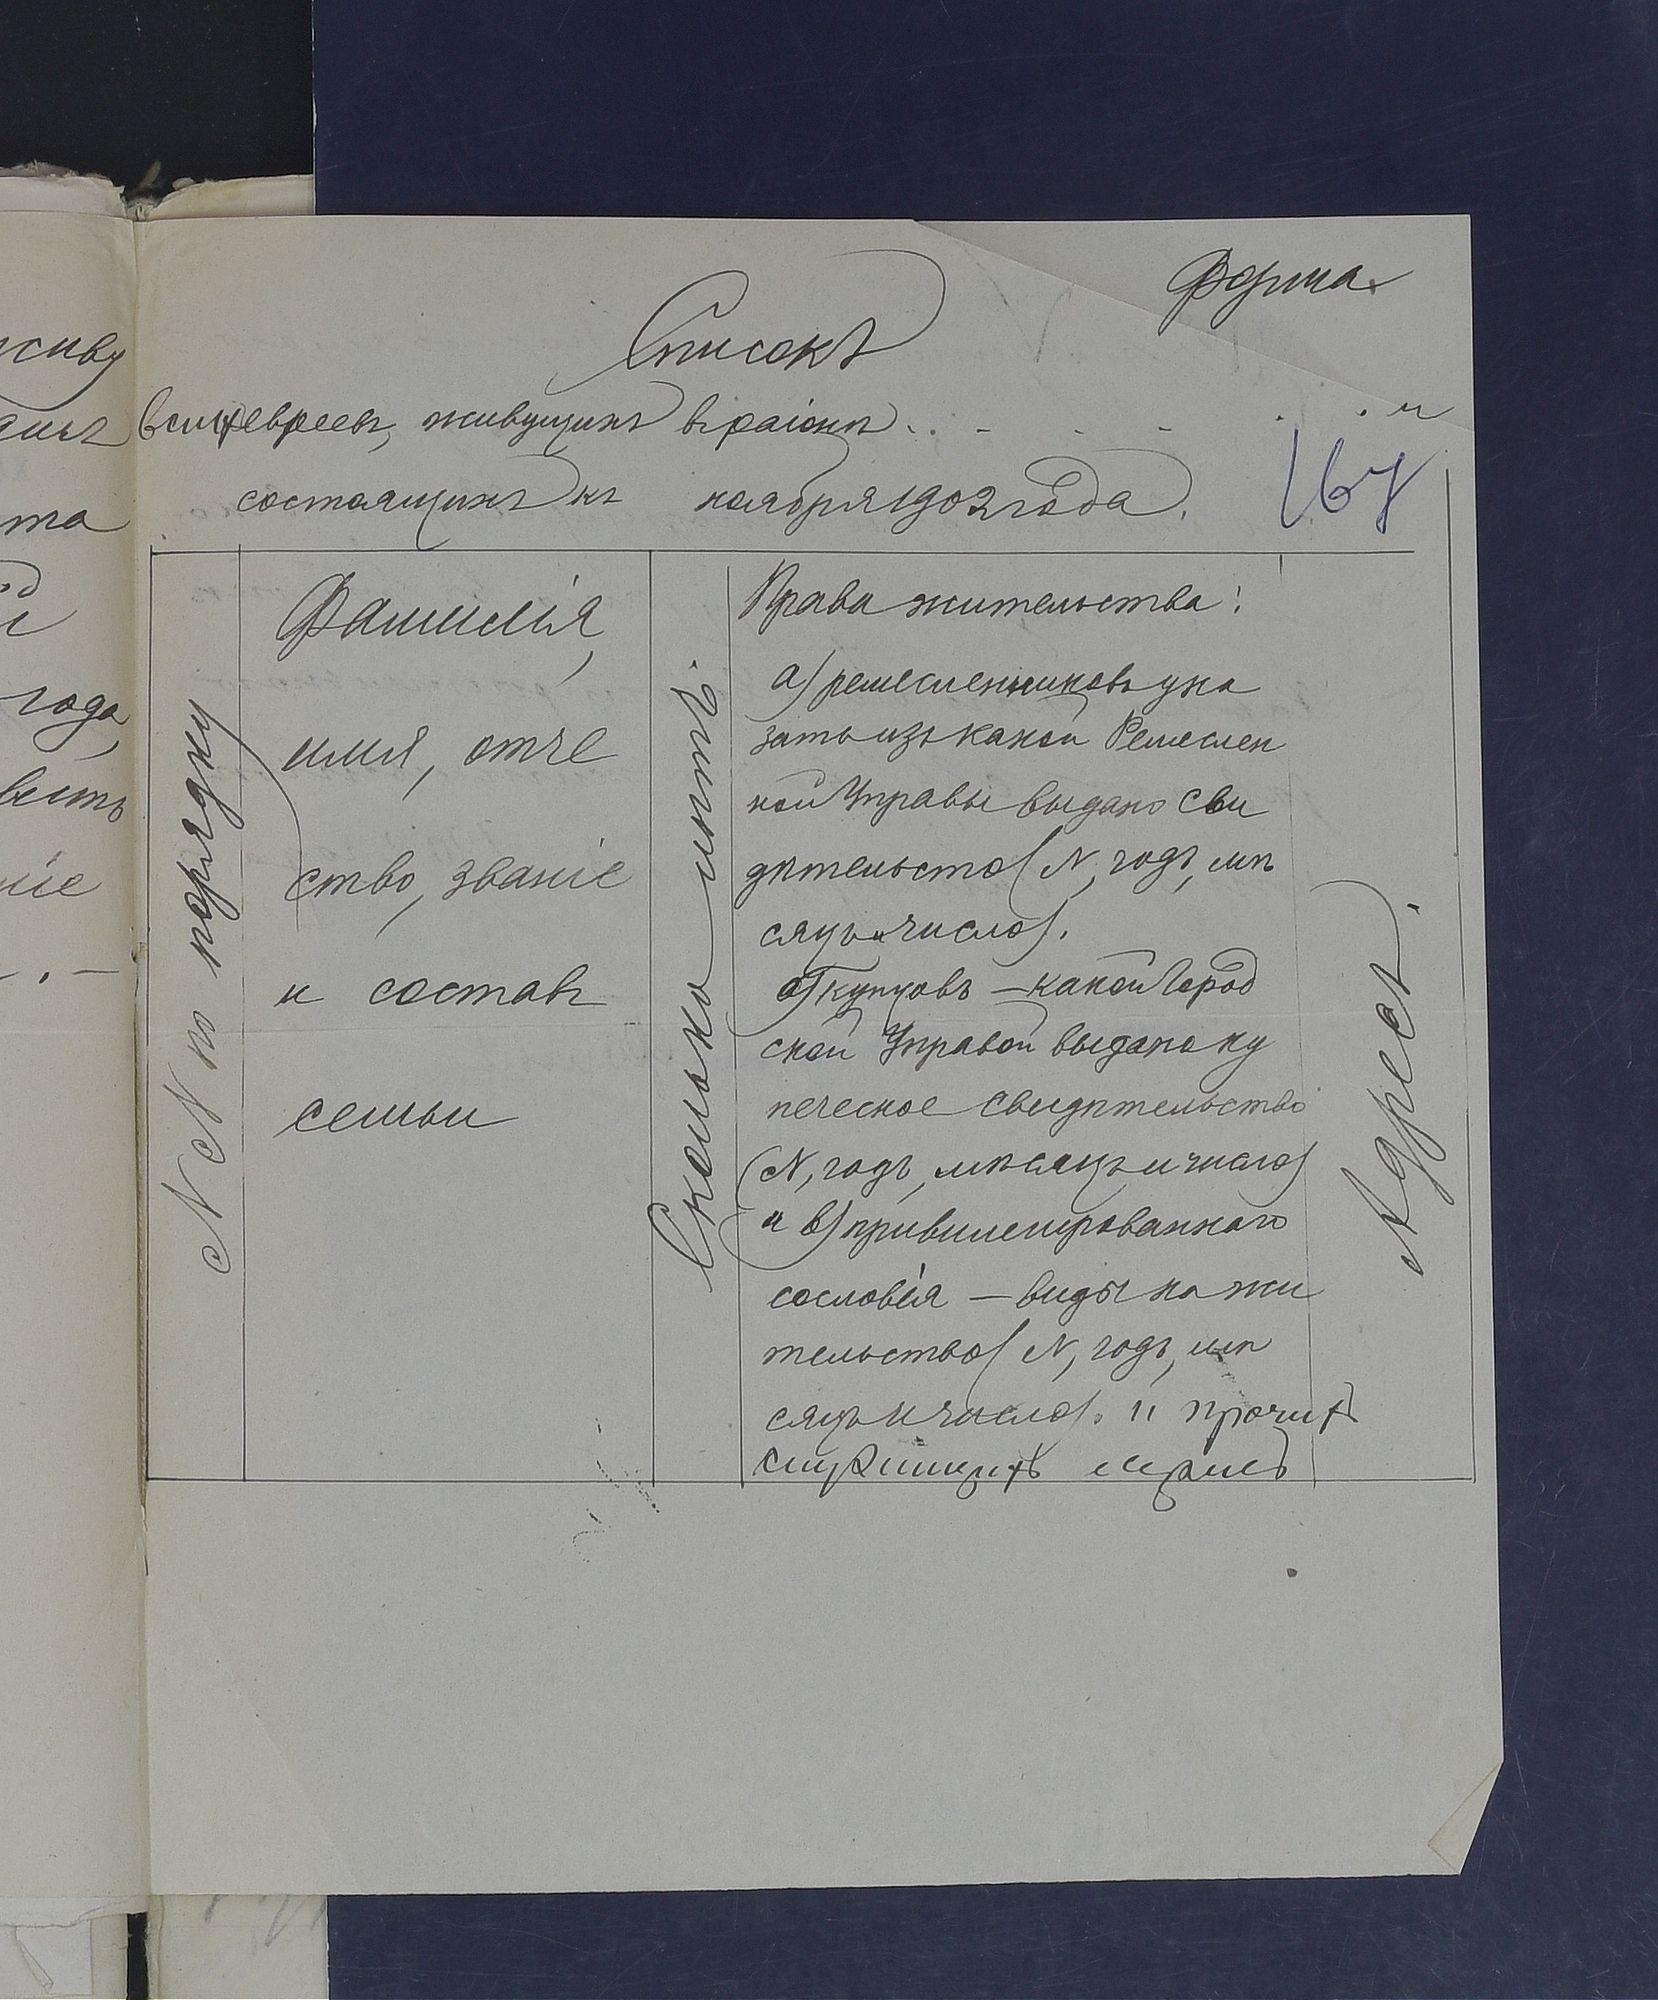 Форма
Списокъ
всѣхъ евреевъ, живущихъ въ раіонѣ . . . . . и
167
состоящихъ къ ноября 1902 года.
№№ по порядку
Фамилія,
имя, отче
ство, званіе
и составъ
семьи
Сколько лѣтъ.
Права жительства:
а) ремесленниковъ ука
зать изъ какой Ремеслен
ной Управы выдано сви
дѣтельство (№, годъ, мѣ
сяцъ и число).
б) купцовъ — какой Город
ской Управой выдано ку
печеское свидѣтельство
(№, годъ, мѣсяцъ и число)
и в) привилегированнаго
сословія — виды на жи
тельство (№, годъ, мѣ
сяцъ и число). и прочихъ
служащихъ
Адресъ.
живу
та
года,
вѣсть
ніе